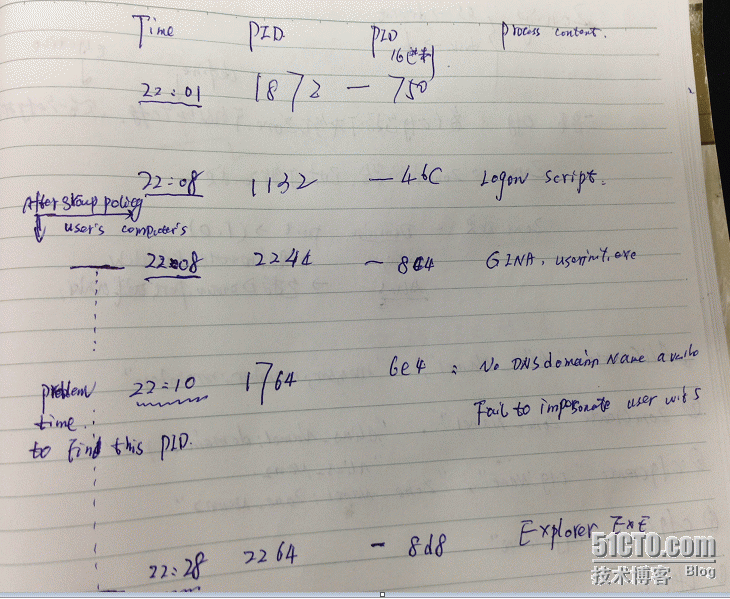 Time PID PID Process content.
16进制
22:01 1872 — 750
22:08 1132 — 46C Logon Script.
After group policy
user's computer's
22:08 2244 — 8c4 GINA, userinit.exe
problem 22:10 1764 6e4 : No DNS domain Name
time. Fail to impersonate user
to find this PID.
22:28 2264 — 8d8 Explorer EXE
51CTO.com
技术博客 Blog